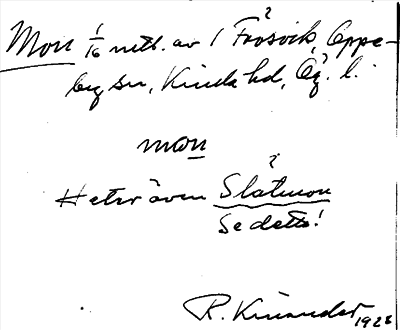 Mon 1/16 mtl. av 1 Frösvik, Oppe-
by sn, Kinda hd, Ög. l.
mon
Heter även Slåtmon
Se detta!
R. Kinander 1928